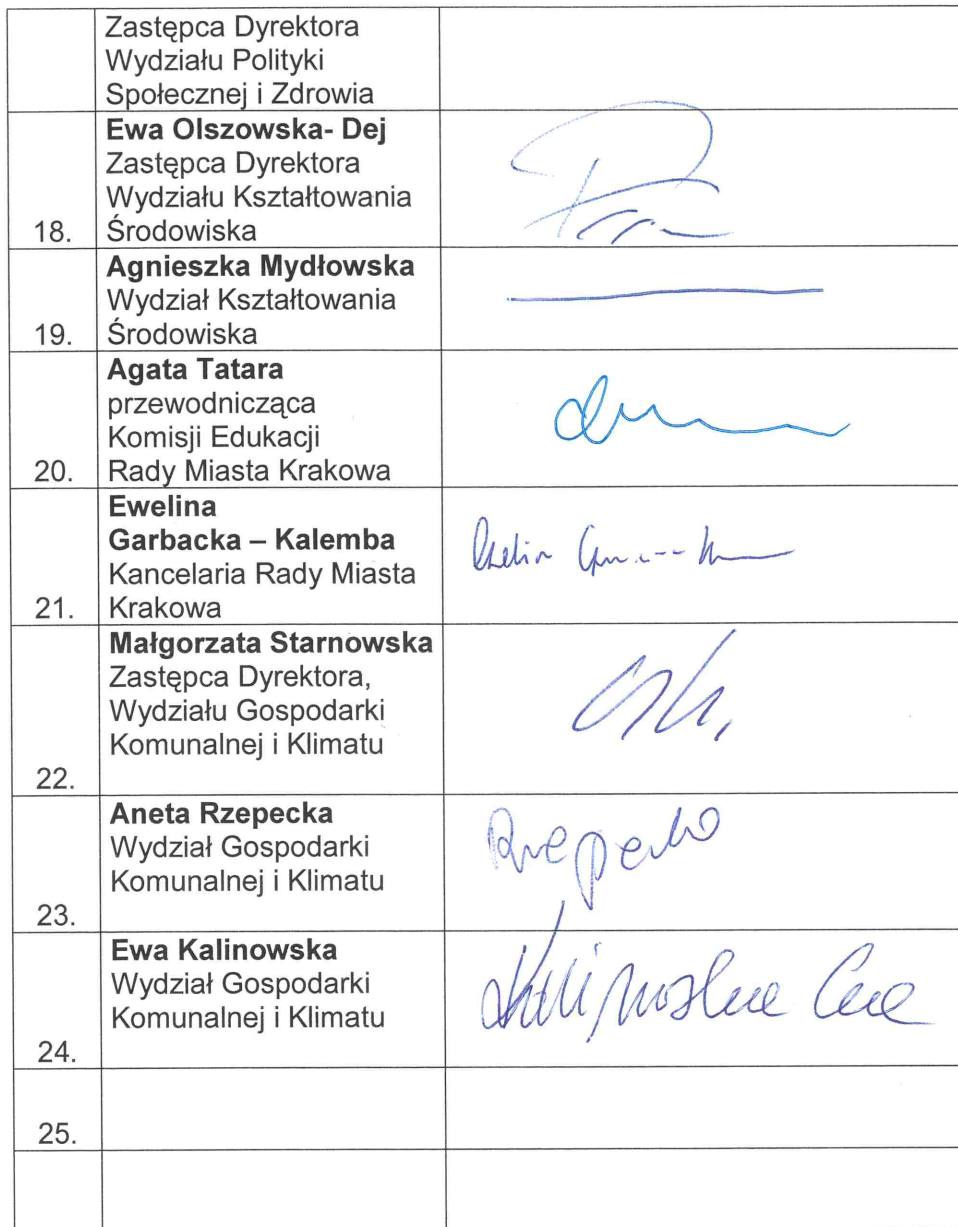 Zastępca Dyrektora
Wydziału Polityki
Społecznej i Zdrowia
18.
Ewa Olszowska- Dej
Zastępca Dyrektora
Wydziału Kształtowania
Środowiska
19.
Agnieszka Mydłowska
Wydział Kształtowania
Środowiska
20.
Agata Tatara
przewodnicząca
Komisji Edukacji
Rady Miasta Krakowa
21.
Ewelina
Garbacka – Kalemba
Kancelaria Rady Miasta
Krakowa
22.
Małgorzata Starnowska
Zastępca Dyrektora,
Wydziału Gospodarki
Komunalnej i Klimatu
23.
Aneta Rzepecka
Wydział Gospodarki
Komunalnej i Klimatu
24.
Ewa Kalinowska
Wydział Gospodarki
Komunalnej i Klimatu
25.